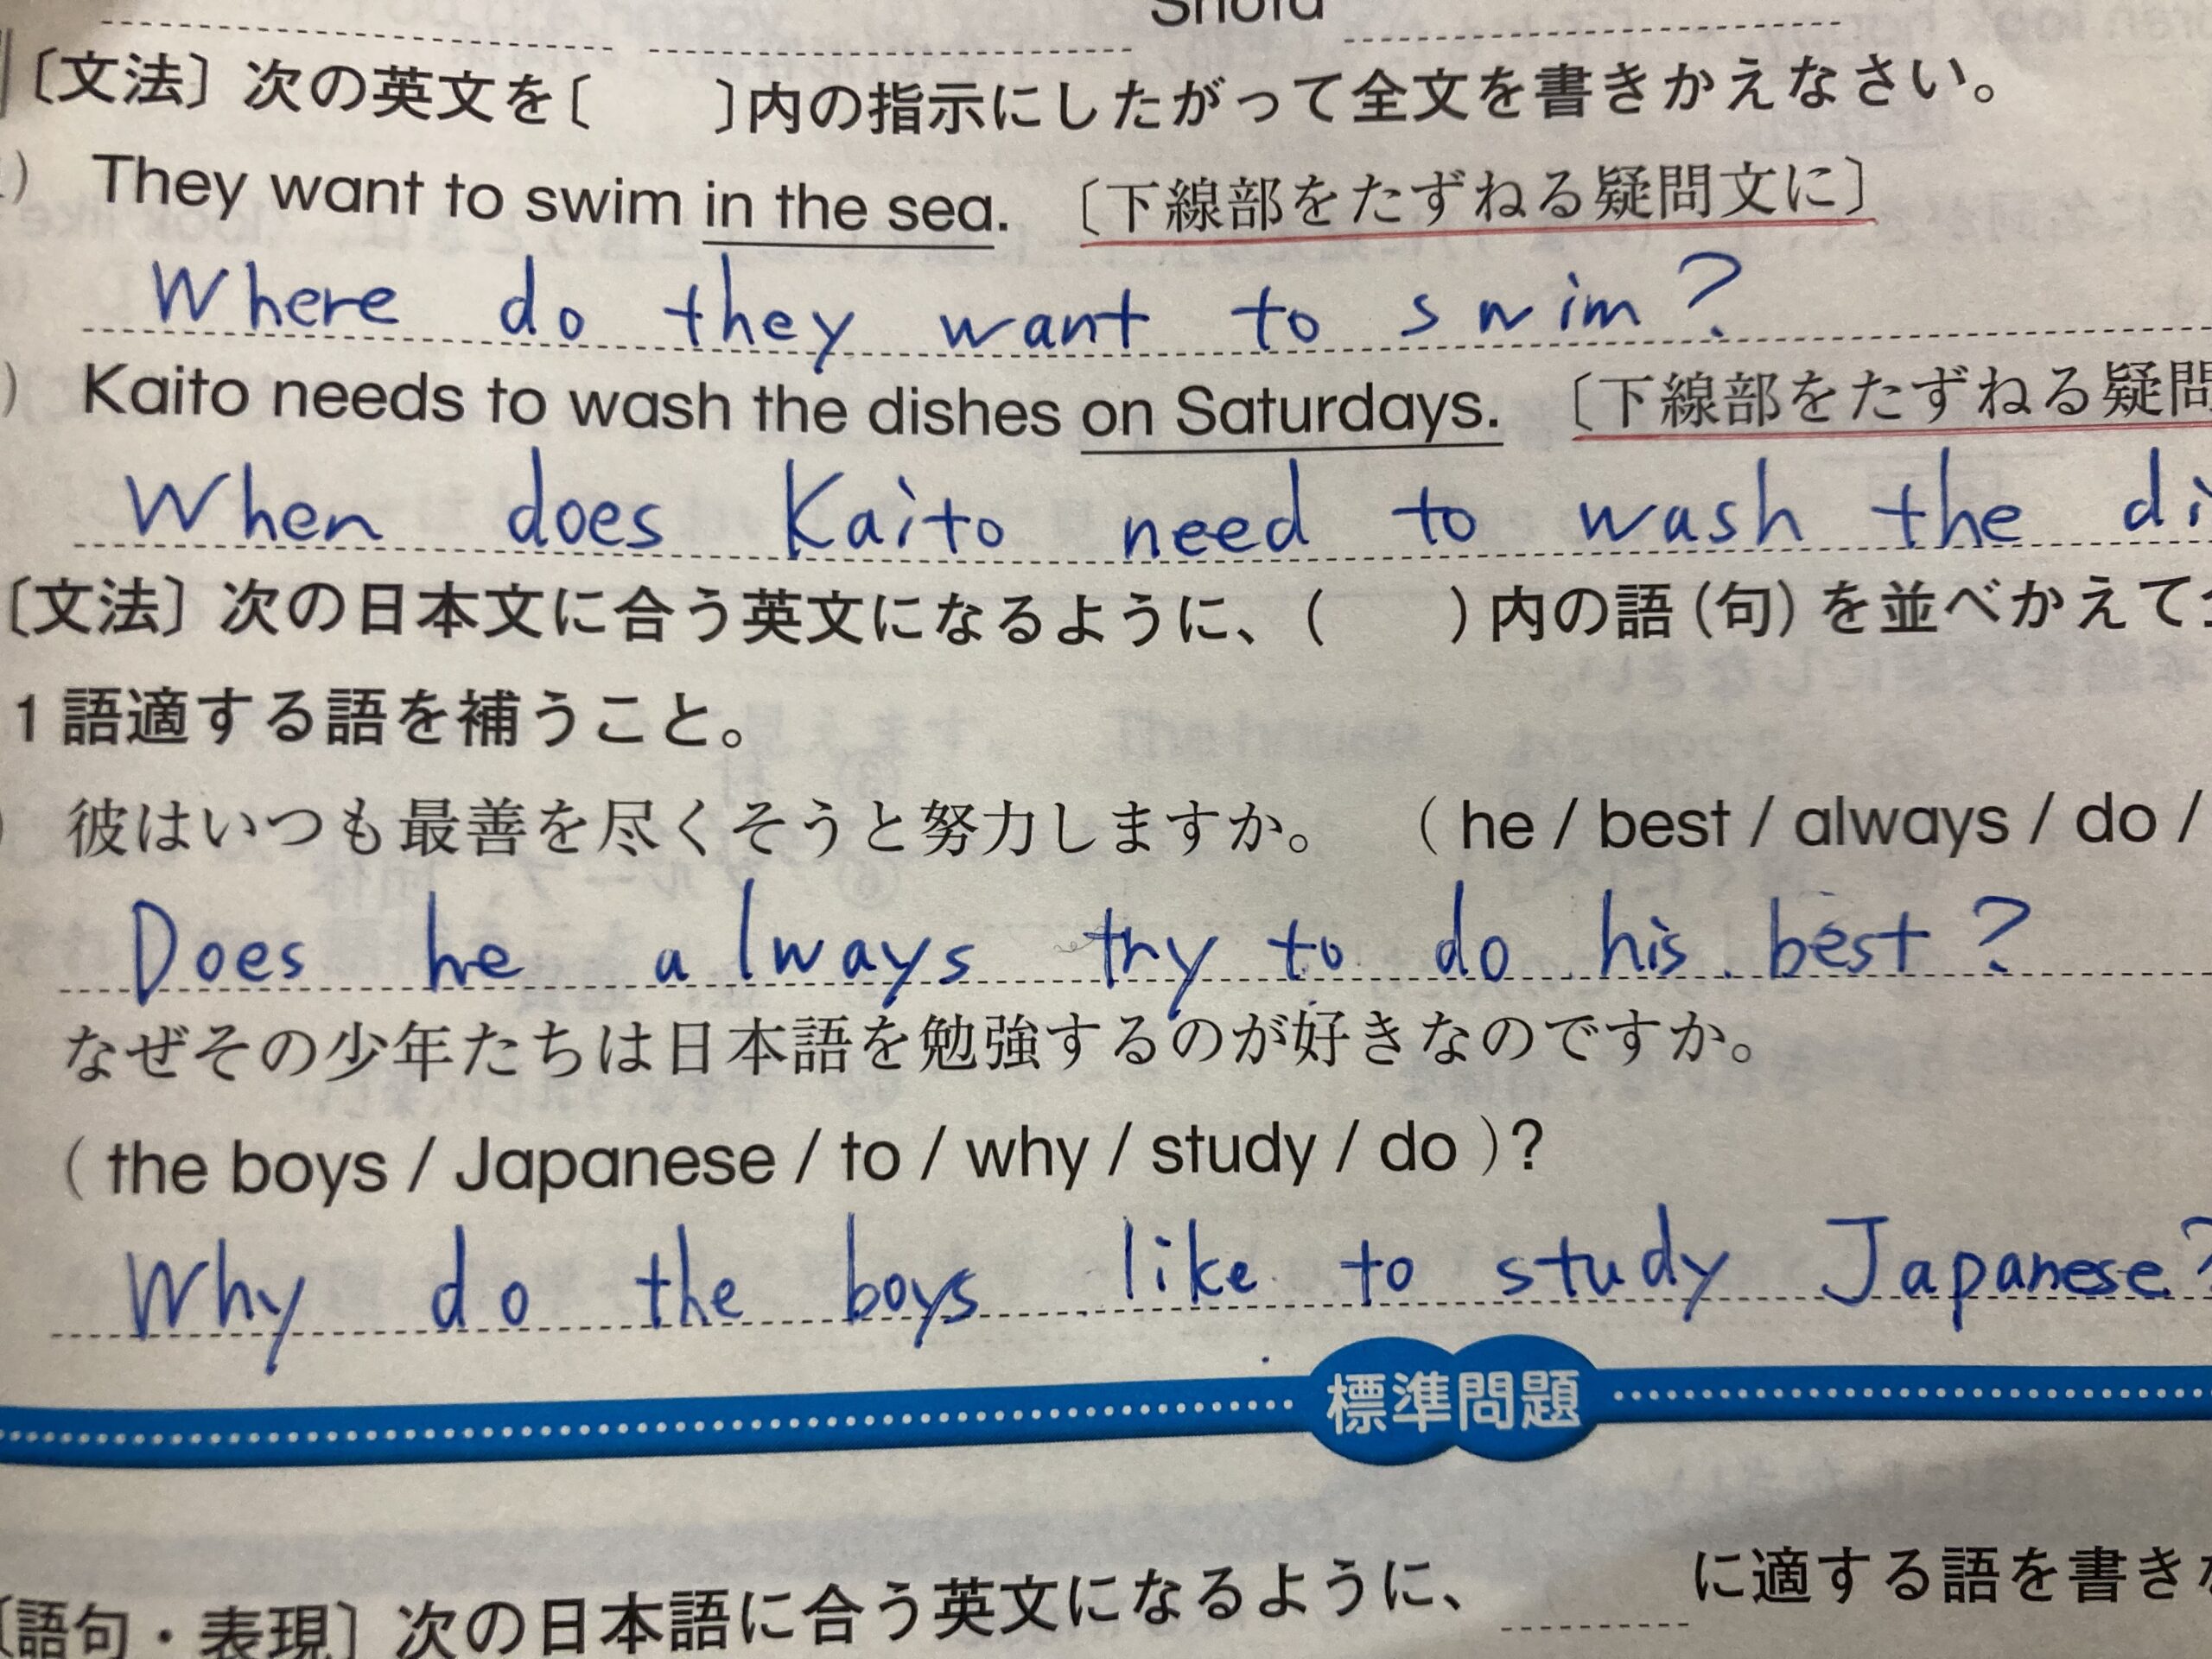 〔文法〕次の英文を〔　　〕内の指示にしたがって全文を書きかえなさい。
) They want to swim in the sea. 〔下線部をたずねる疑問文に〕
Where do they want to swim?
) Kaito needs to wash the dishes on Saturdays. 〔下線部をたずねる疑問
When does Kaito need to wash the di
〔文法〕次の日本文に合う英文になるように、(　　)内の語(句)を並べかえて
1語適する語を補うこと。
) 彼はいつも最善を尽くそうと努力しますか。 ( he / best / always / do /
Does he always try to do his best?
なぜその少年たちは日本語を勉強するのが好きなのですか。
( the boys / Japanese / to / why / study / do )?
Why do the boys like to study Japanese?
標準問題
〔語句・表現〕次の日本語に合う英文になるように、　　に適する語を書き